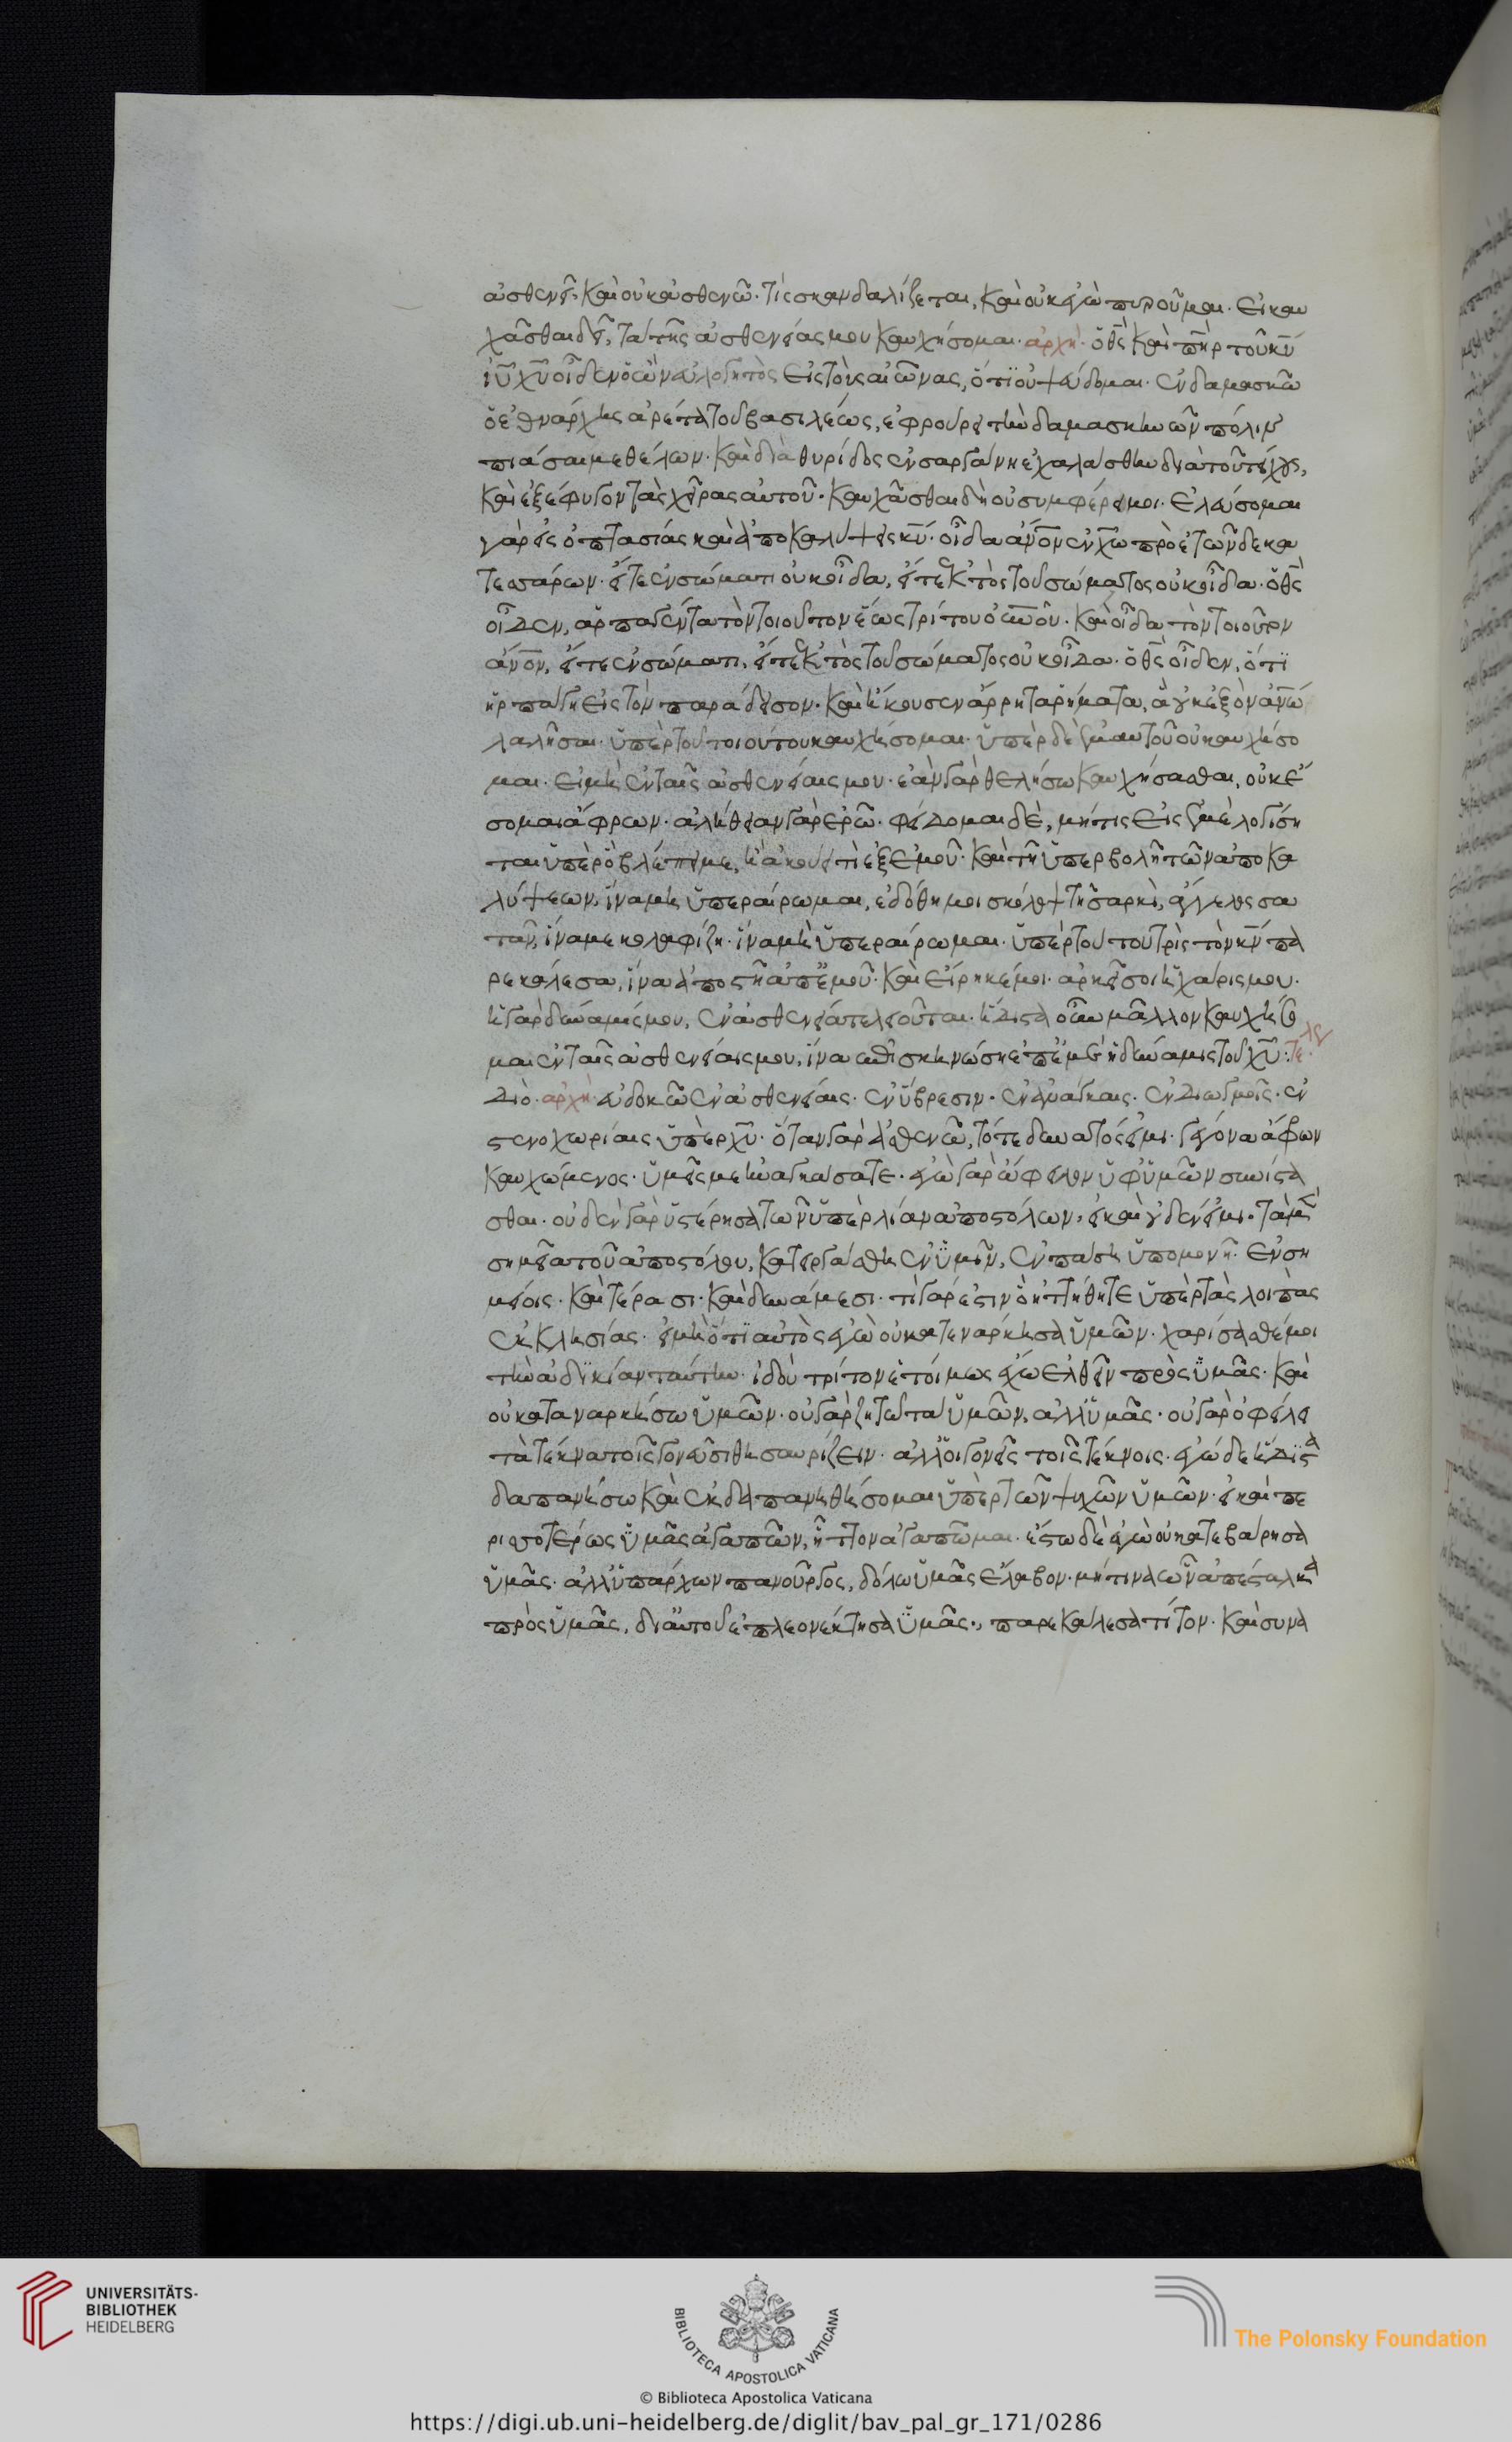 ἀσθενεῖ· καὶ οὐκ ἀσθενῶ· τίς σκανδαλίζεται, καὶ οὐκ ἐγὼ πυροῦμαι· εἰ καυ
χᾶσθαι δεῖ, τὰ τῆς ἀσθενείας μου καυχήσομαι· ἀρχὴ· ὁ θς καὶ πηρ τοῦ κυ
ιυ χυ οἶδεν ὁ ὢν εὐλογητὸς εἰς τοὺς αἰῶνας, ὅτι οὐ ψεύδομαι· ἐν δαμασκῶ
ὁ ἐθνάρχης ἀρέτα τοῦ βασιλέως, ἐφρούρει τὴν δαμασκηνῶν πόλιν
πιάσαι με θέλων· καὶ διὰ θυρίδος ἐν σαργάνη ἐχαλάσθην διὰ τοῦ τείχους,
καὶ ἐξέφυγον τὰς χεῖρας αὐτοῦ· καυχᾶσθαι δὴ οὐ συμφέρει μοι· ἐλεύσομαι
γὰρ εἰς ὀπτασίας καὶ ἀποκαλύψεις κυ· οἶδα ἀνον ἐν χω πρὸ ἐτῶν δεκα
τεσσάρων· εἴτε ἐν σώματι οὐκ οἶδα, εἴτε ἐκτὸς τοῦ σώματος οὐκ οἶδα· ὁ θς
οἶδεν, ἁρπαγέντα τὸν τοιοῦτον ἕως τρίτου οὐνοῦ· καὶ οἶδα τὸν τοιοῦτον
ἀνον, εἴτε ἐν σώματι, εἴτε ἐκτὸς τοῦ σώματος οὐκ οἶδα· ὁ θς οἶδεν, ὅτι
ἡρπάγη εἰς τὸν παράδεισον· καὶ ἤκουσεν ἄρρητα ῥήματα, ἃ οὐκ ἐξὸν ἀνω
λαλῆσαι· ὑπὲρ τοῦ τοιούτου καυχήσομαι· ὑπὲρ δὲ ἐμαυτοῦ οὐ καυχήσο
μαι· εἰ μὴ ἐν ταῖς ἀσθενείαις μου· ἐὰν γὰρ θελήσω καυχήσασθαι, οὐκ ἔ
σομαι ἄφρων· ἀλήθειαν γὰρ ἐρῶ· φείδομαι δὲ, μήτις εἰς ἐμὲ λογίση
ται ὑπὲρ ὃ βλέπει με, ἢ ἀκούει τὶ ἐξ ἐμοῦ· καὶ τῆ ὑπερβολῆ τῶν ἀποκα
λύψεων, ἵνα μὴ ὑπεραίρωμαι, ἐδόθη μοι σκόλοψ τῆ σαρκὶ, ἄγγελος σα
τᾶν, ἵνα με κολαφίζη· ἵνα μὴ ὑπεραίρωμαι· ὑπὲρ τούτου τρὶς τὸν κν πα
ρεκάλεσα, ἵνα ἀποστῆ ἀπ' ἐμοῦ· καὶ εἴρηκέ μοι· ἀρκεῖ σοι ἡ χάρις μου·
ἡ γὰρ δύναμίς μου, ἐν ἀσθενεία τελειοῦται· ἥδιστα οὖν μᾶλλον καυχήσο
μαι ἐν ταῖς ἀσθενείαις μου, ἵνα ἐπισκηνώση ἐπ' ἐμὲ ἡ δύναμις τοῦ χυ: τέλος
διὸ· ἀρχὴ· εὐδοκῶ ἐν ἀσθενείαις· ἐν ὕβρεσιν· ἐν ἀνάγκαις· ἐν διωγμοῖς· ἐν
στενοχωρίαις ὑπὲρ χυ· ὅταν γὰρ ἀσθενῶ, τότε δυνατός εἰμι· γέγονα ἄφρων
καυχώμενος· ὑμεῖς με ἠναγκάσατε· ἐγὼ γὰρ ὤφειλον ὑφ' ὑμῶν συνίστα
σθαι· οὐδὲν γὰρ ὑστέρησα τῶν ὑπὲρ λίαν ἀποστόλων, εἰ καὶ οὐδέν εἰμι· τὰ μὲν
σημεῖα τοῦ ἀποστόλου, κατειργάσθη ἐν ὑμῖν, ἐν πάση ὑπομονῆ· ἐν ση
μείοις· καὶ τέρασι· καὶ δυνάμεσι· τί γάρ ἐστιν ὃ ἡττήθητε ὑπὲρ τὰς λοιπὰς
ἐκκλησίας· εἰ μὴ ὅτι αὐτὸς ἐγὼ οὐ κατενάρκησα ὑμῶν· χαρίσασθέ μοι
τὴν ἀδικίαν ταύτην· ἰδοὺ τρίτον ἑτοίμως ἔχω ἐλθεῖν πρὸς ὑμᾶς· καὶ
οὐ καταναρκήσω ὑμῶν· οὐ γὰρ ζητῶ τὰ ὑμῶν, ἀλλ' ὑμᾶς· οὐ γὰρ ὀφείλει
τὰ τέκνα τοῖς γονεῦσι θησαυρίζειν· ἀλλ' οἱ γονεῖς τοῖς τέκνοις· ἐγὼ δὲ ἥδιστα
δαπανήσω καὶ ἐκδαπανηθήσομαι ὑπὲρ τῶν ψυχῶν ὑμῶν· εἰ καὶ πε
ρισσοτέρως ὑμᾶς ἀγαπῶν, ἧττον ἀγαπῶμαι· ἔστω δὲ ἐγὼ οὐ κατεβάρησα
ὑμᾶς· ἀλλ' ὑπάρχων πανοῦργος, δόλω ὑμᾶς ἔλαβον· μή τινα ὧν ἀπέσταλκα
πρὸς ὑμᾶς, δι' αὐτοῦ ἐπλεονέκτησα ὑμᾶς·, παρεκάλεσα τίτον· καὶ συνα
UNIVERSITÄTS-
BIBLIOTHEK
HEIDELBERG
BIBLIOTECA APOSTOLICA VATICANA
The Polonsky Foundation
© Biblioteca Apostolica Vaticana
https://digi.ub.uni-heidelberg.de/diglit/bav_pal_gr_171/0286